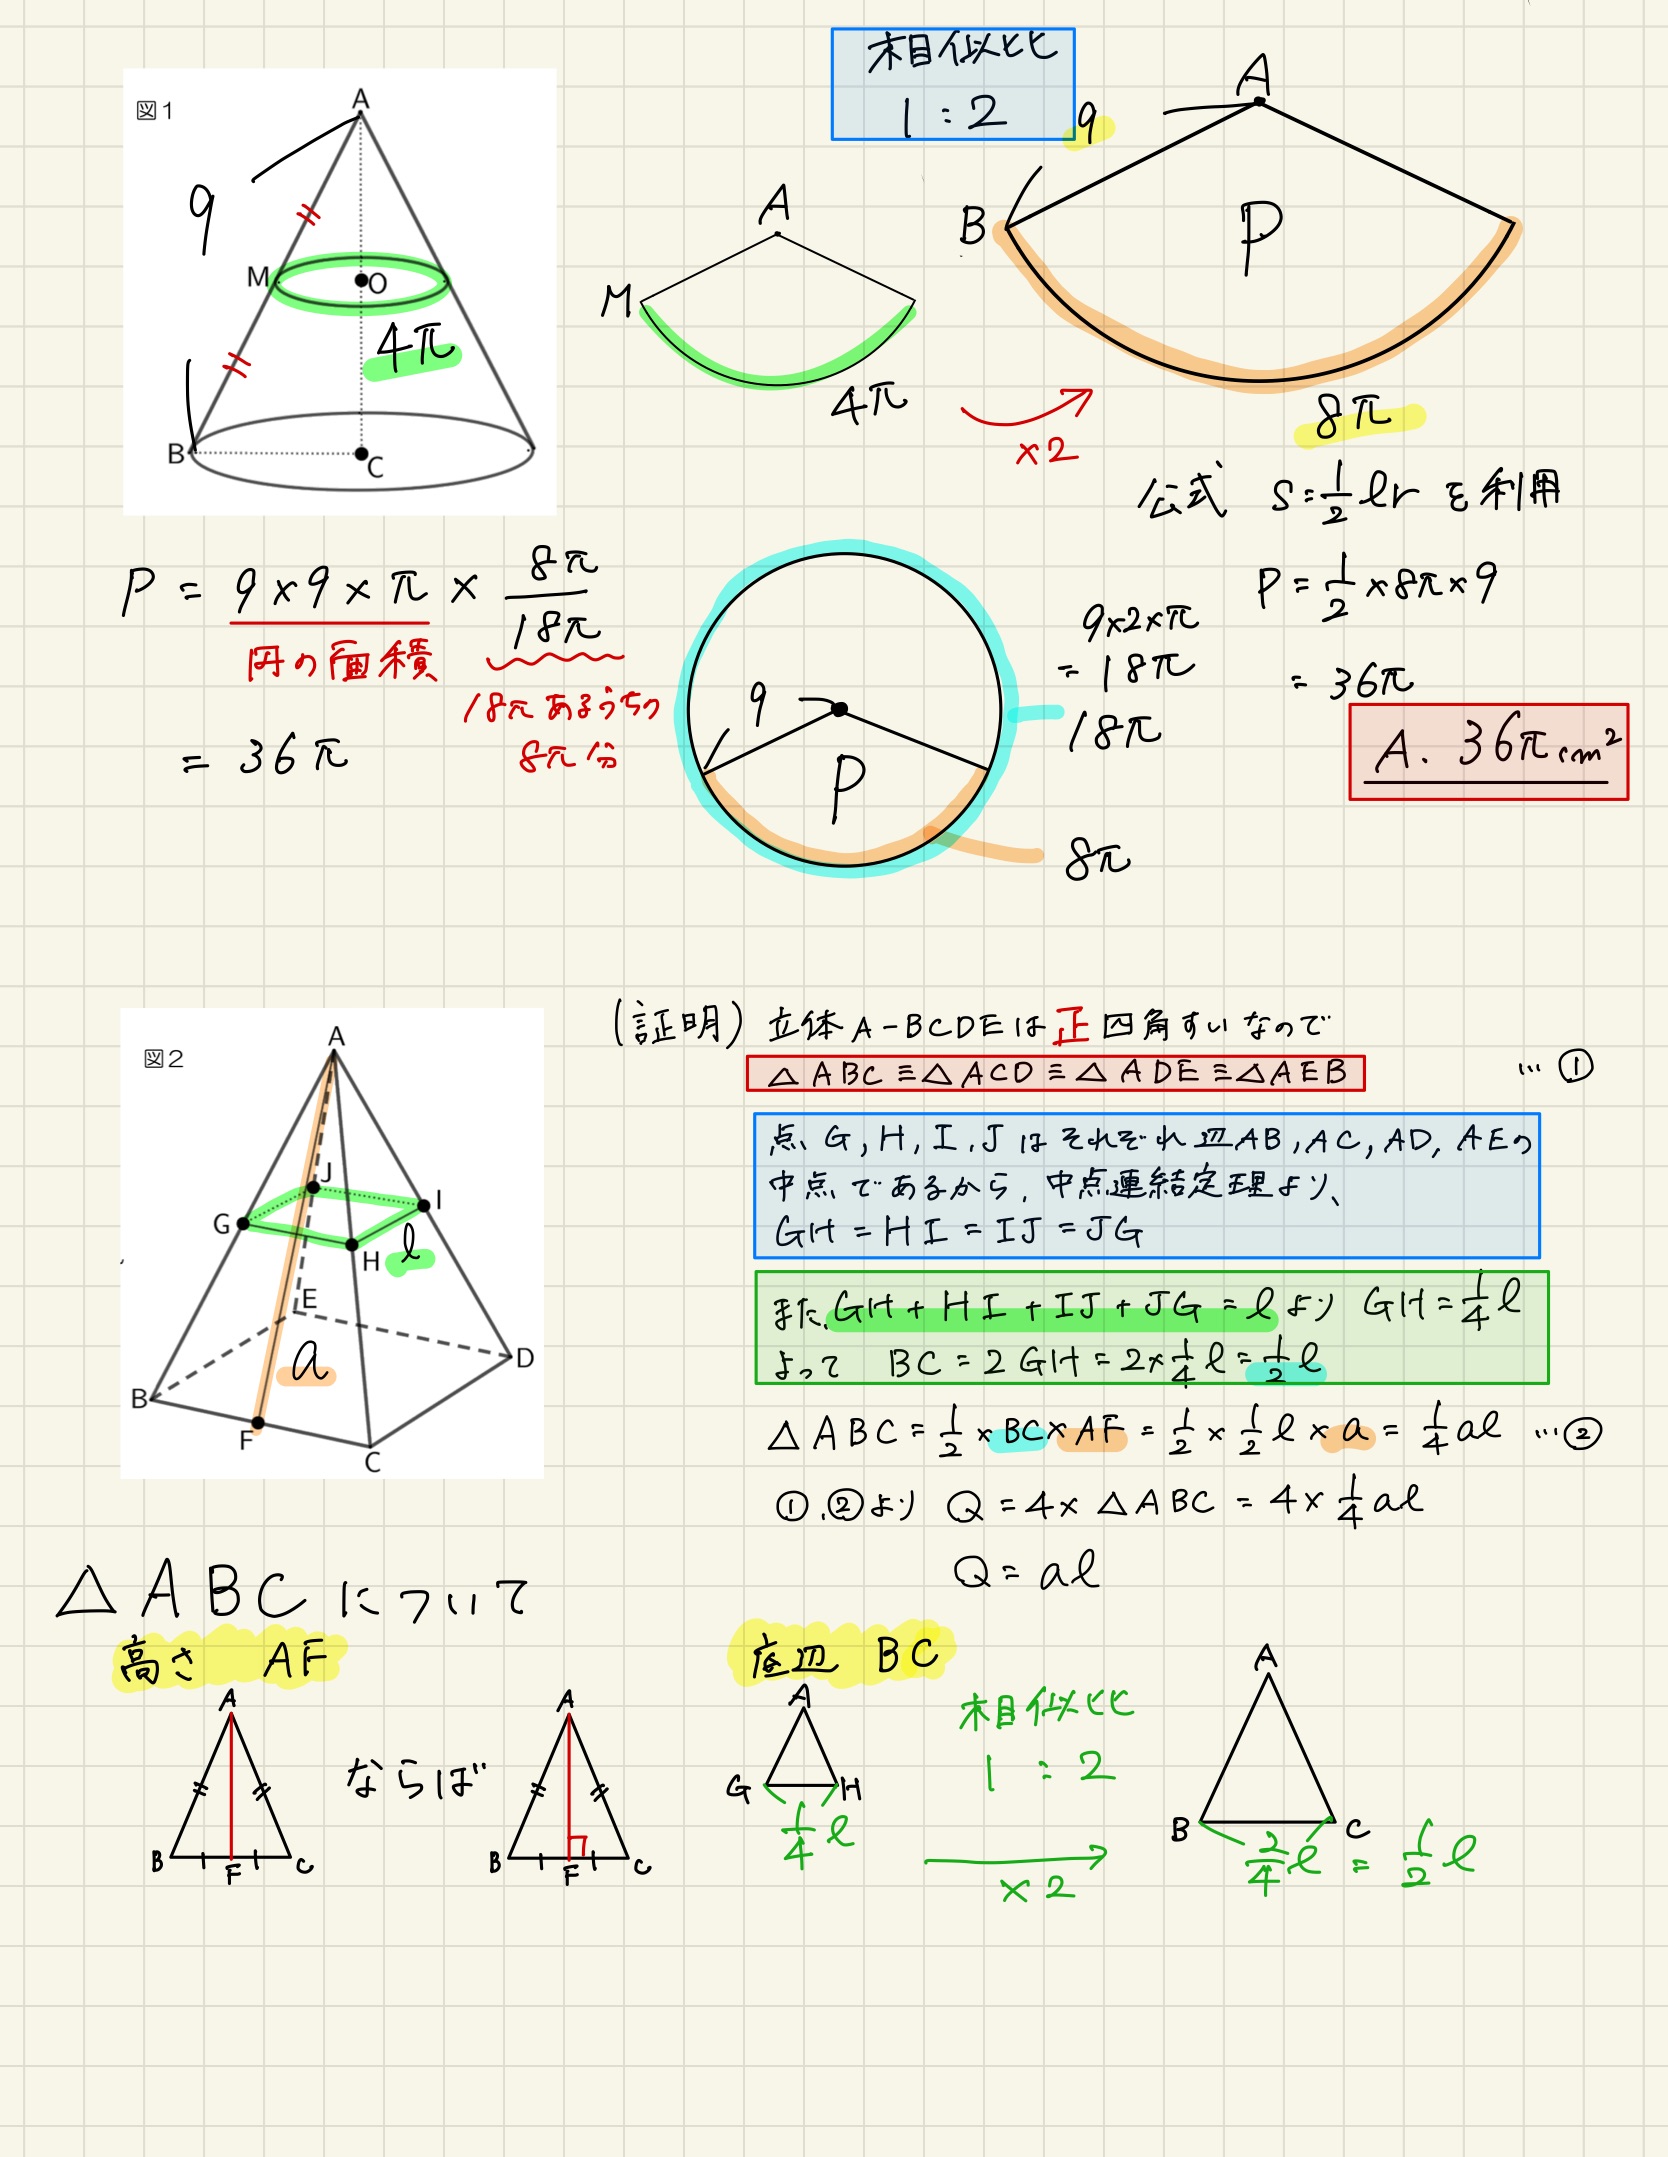 相似比
1 : 2
図1
A
9
M
O
4π
B
C
A
M
4π
×2
A
9
B
P
8π
公式 S=1/2 lr を利用
P = 9×9×π × 8π/18π
円の面積
18πあるうちの
8π分
= 36π
9
P
9×2×π
= 18π
18π
8π
P = 1/2 ×8π×9
= 36π
A. 36πcm²
図2
A
J
I
G
H
l
E
a
D
B
F
C
(証明) 立体A-BCDEは正四角すいなので
△ABC≡△ACD≡△ADE≡△AEB …①
点G,H,I,Jはそれぞれ辺AB,AC,AD,AEの
中点であるから,中点連結定理より、
GH=HI=IJ=JG
また,GH+HI+IJ+JG=lより GH=1/4 l
よって BC=2GH=2×1/4 l=1/2 l
△ABC=1/2×BC×AF=1/2×1/2 l×a=1/4 al …②
①,②より Q=4×△ABC=4×1/4 al
Q=al
△ABCについて
高さ AF
A
B
F
C
ならば
A
B
F
C
底辺 BC
A
G
H
1/4 l
相似比
1 : 2
×2
A
B
C
2/4 l = 1/2 l